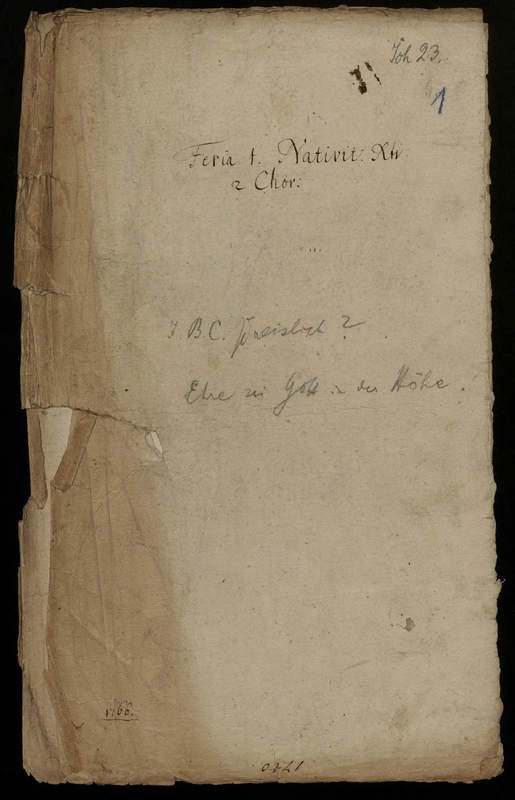 Joh 23.
1
Feria 1. Nativit: Xti
2 Chor:
J. B. C. Freislich ?
Ehre sei Gott in der Höhe.